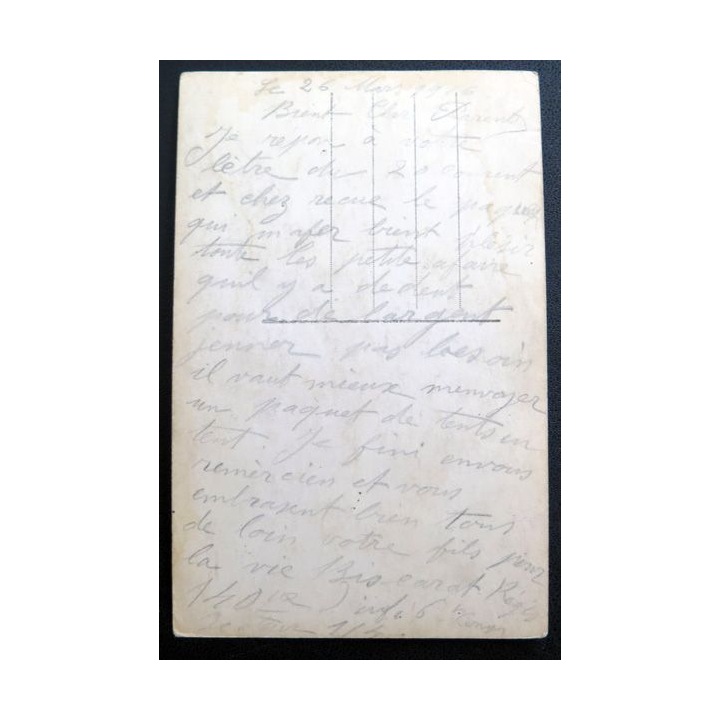 Le 26 Mars 1916
Bient Cher Parents
Je repon à votre
lètre du 20 courent
et chez recue le paquet
qui mafer bient plésir
toute les petite afaire
quil y a dedent
pour de largent
jenner pas besoin
il vaut mieux menvoyer
un paquet de tents en
tent. Je fini en vous
remèrcien et vous
embrasent bien tous
de loin votre fils pour
la vie Biscarat Régis
140